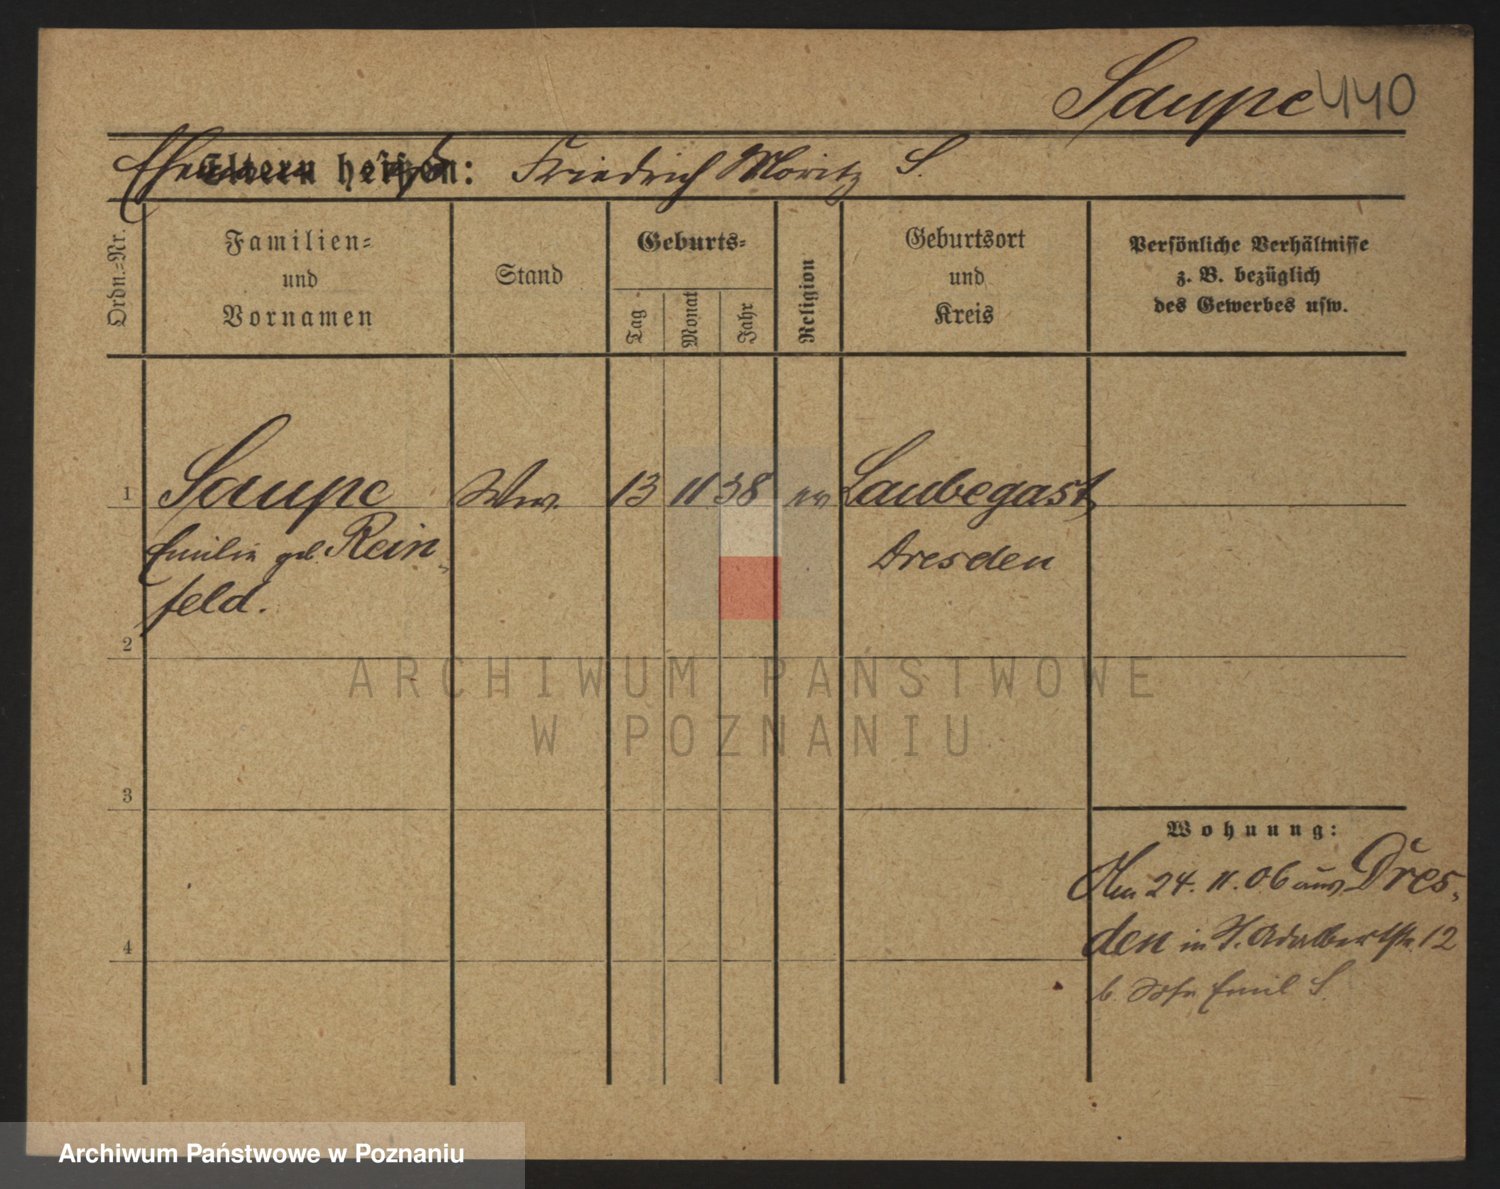 Saupe 440
Eltern heißen: Friedrich Moritz S.
Ordn.=Nr.
Familien=
und
Vornamen
Stand
Geburts=
Tag
Monat
Jahr
Religion
Geburtsort
und
Kreis
Persönliche Verhältnisse
z. B. bezüglich
des Gewerbes usw.
1 Saupe Ww. 13 11 38 ev Laubegast
Emilie geb. Rein-
feld.
Dresden
2
3
4
Wohnung:
Am 24. 11. 06 aus Dres-
den in H. Adalbertstr. 12
b. Sohn Emil S.
ARCHIWUM PAŃSTWOWE
W POZNANIU
Archiwum Państwowe w Poznaniu